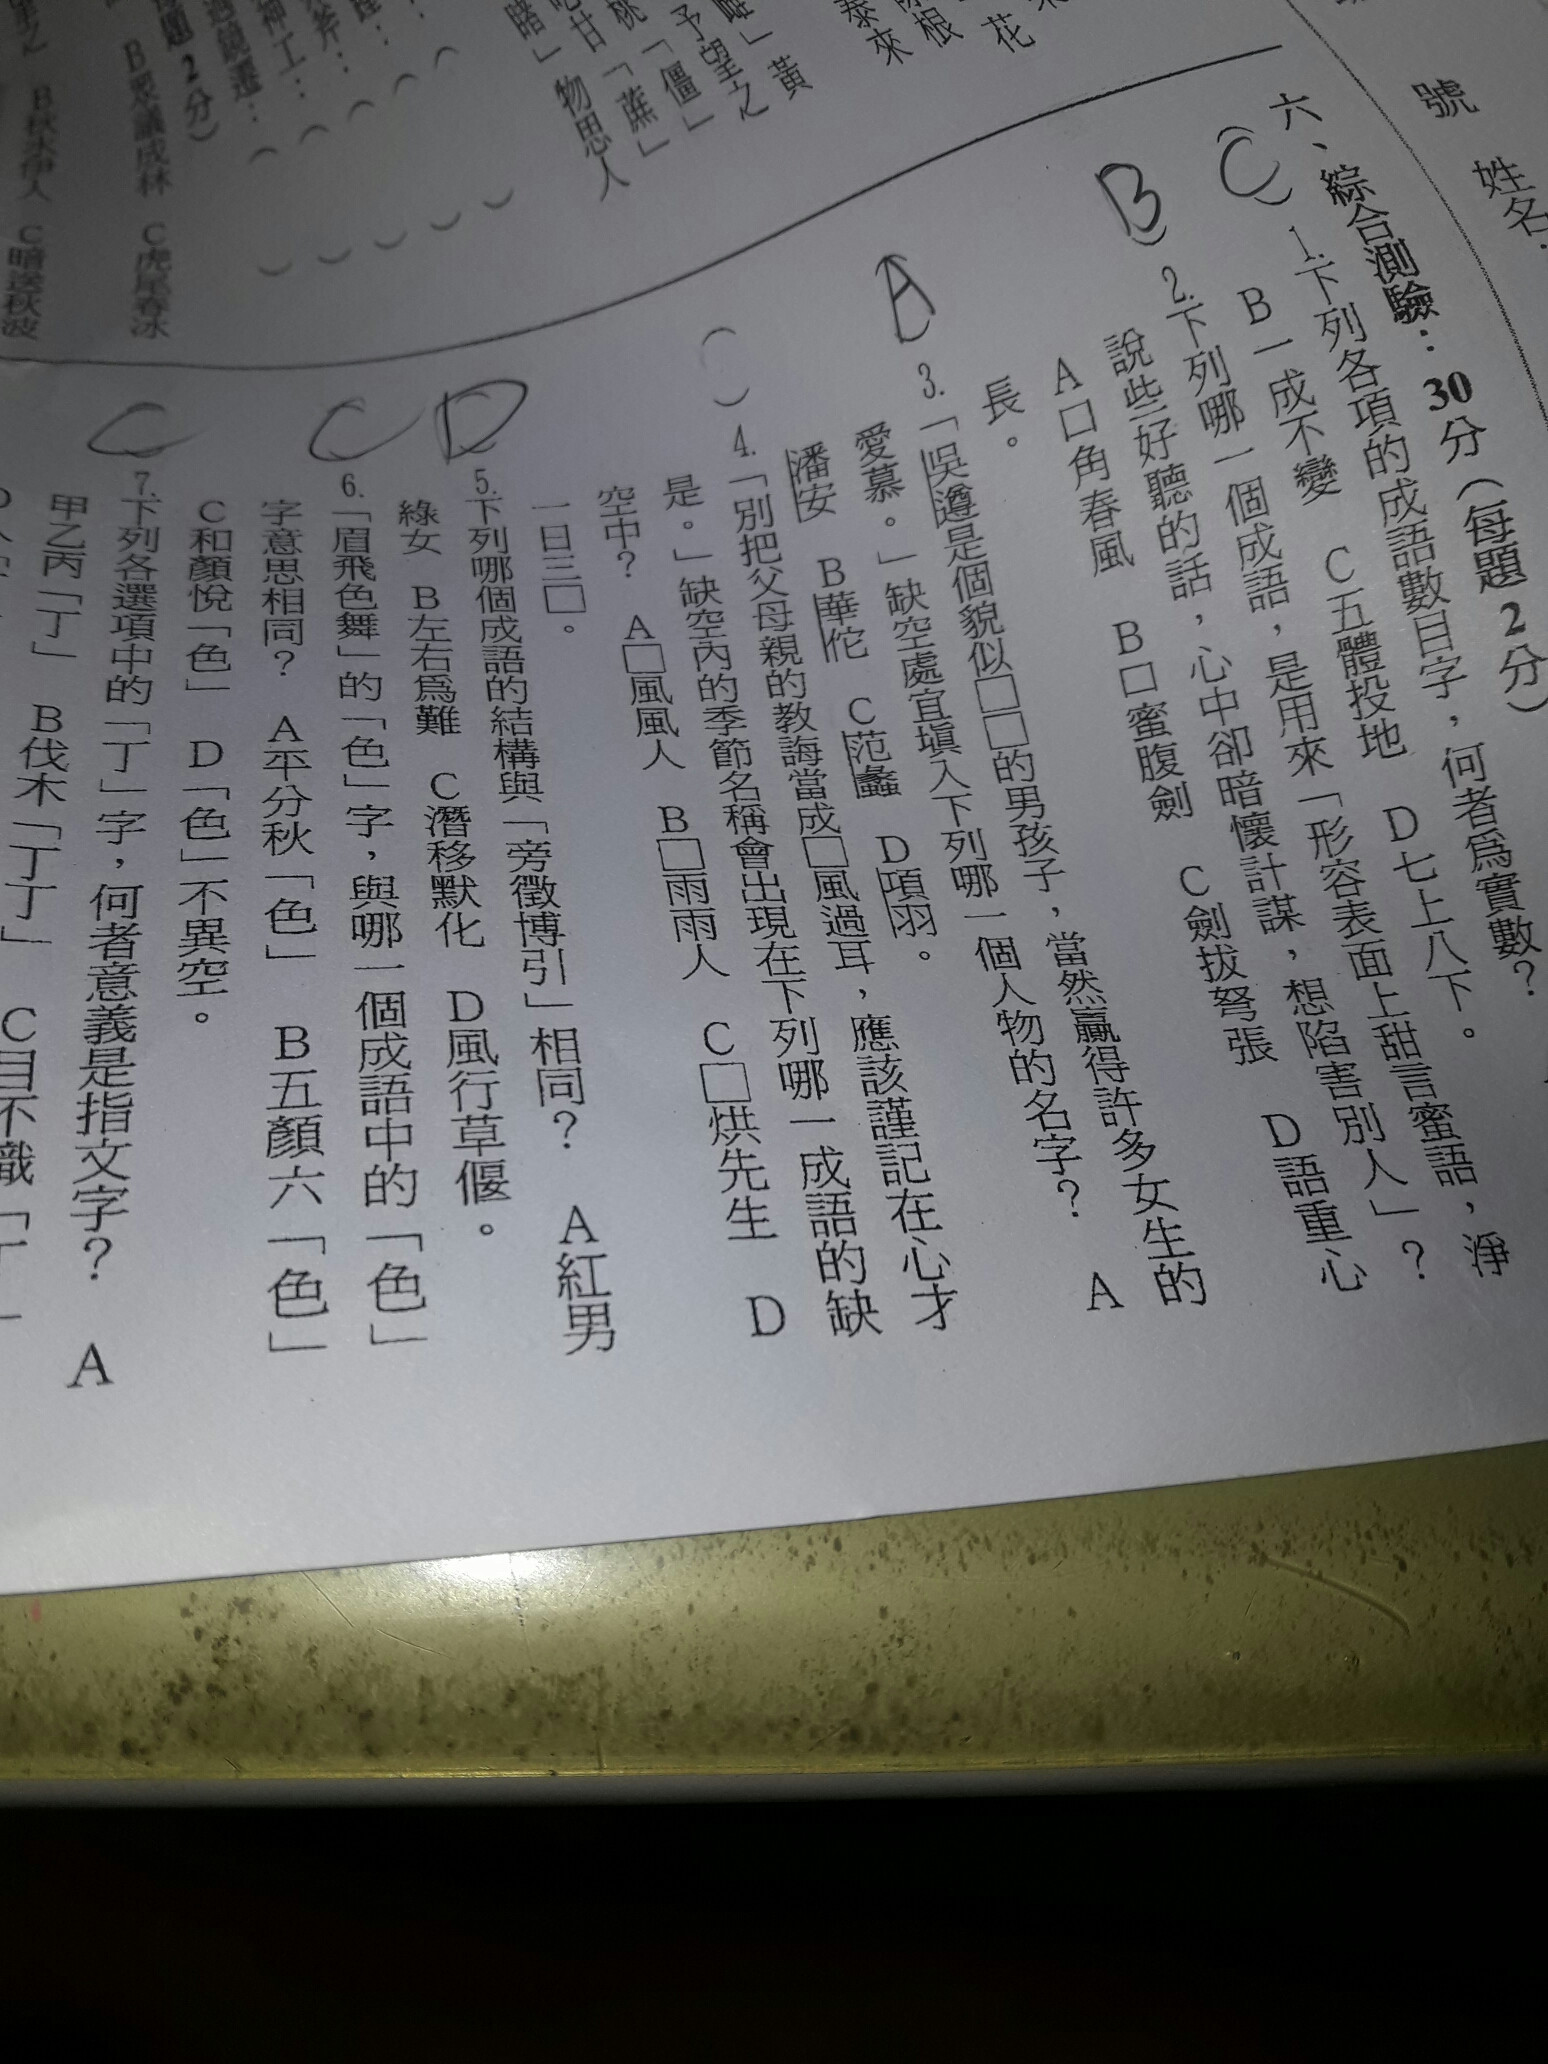 號
姓名:
六、綜合測驗:30分(每題2分)
(C)1.下列各項的成語數目字,何者爲實數?
B一成不變 C五體投地 D七上八下。
B)2.下列哪一個成語,是用來「形容表面上甜言蜜語,淨
說些好聽的話,心中卻暗懷計謀,想陷害別人」?
A口角春風 B口蜜腹劍 C劍拔弩張 D語重心
長。
A 3.「吳遵是個貌似□□的男孩子,當然贏得許多女生的
愛慕。」缺空處宜填入下列哪一個人物的名字? A
潘安 B華佗 C范蠡 D項羽。
( )4.「別把父母親的教誨當成□風過耳,應該謹記在心才
是。」缺空內的季節名稱會出現在下列哪一成語的缺
空中? A□風風人 B□雨雨人 C□烘先生 D
一日三□。
D 5.下列哪個成語的結構與「旁徵博引」相同? A紅男
綠女 B左右爲難 C潛移默化 D風行草偃。
C 6.「眉飛色舞」的「色」字,與哪一個成語中的「色」
字意思相同? A平分秋「色」 B五顏六「色」
C和顏悅「色」 D「色」不異空。
C 7.下列各選項中的「丁」字,何者意義是指文字? A
甲乙丙「丁」 B伐木「丁丁」 C目不識「丁」
花
泰來
黃
予望之
「僵」
「蔗」
睹」物思人
題2分)
B眾議成林 C虎尾春冰
B秋水伊人 C暗送秋波